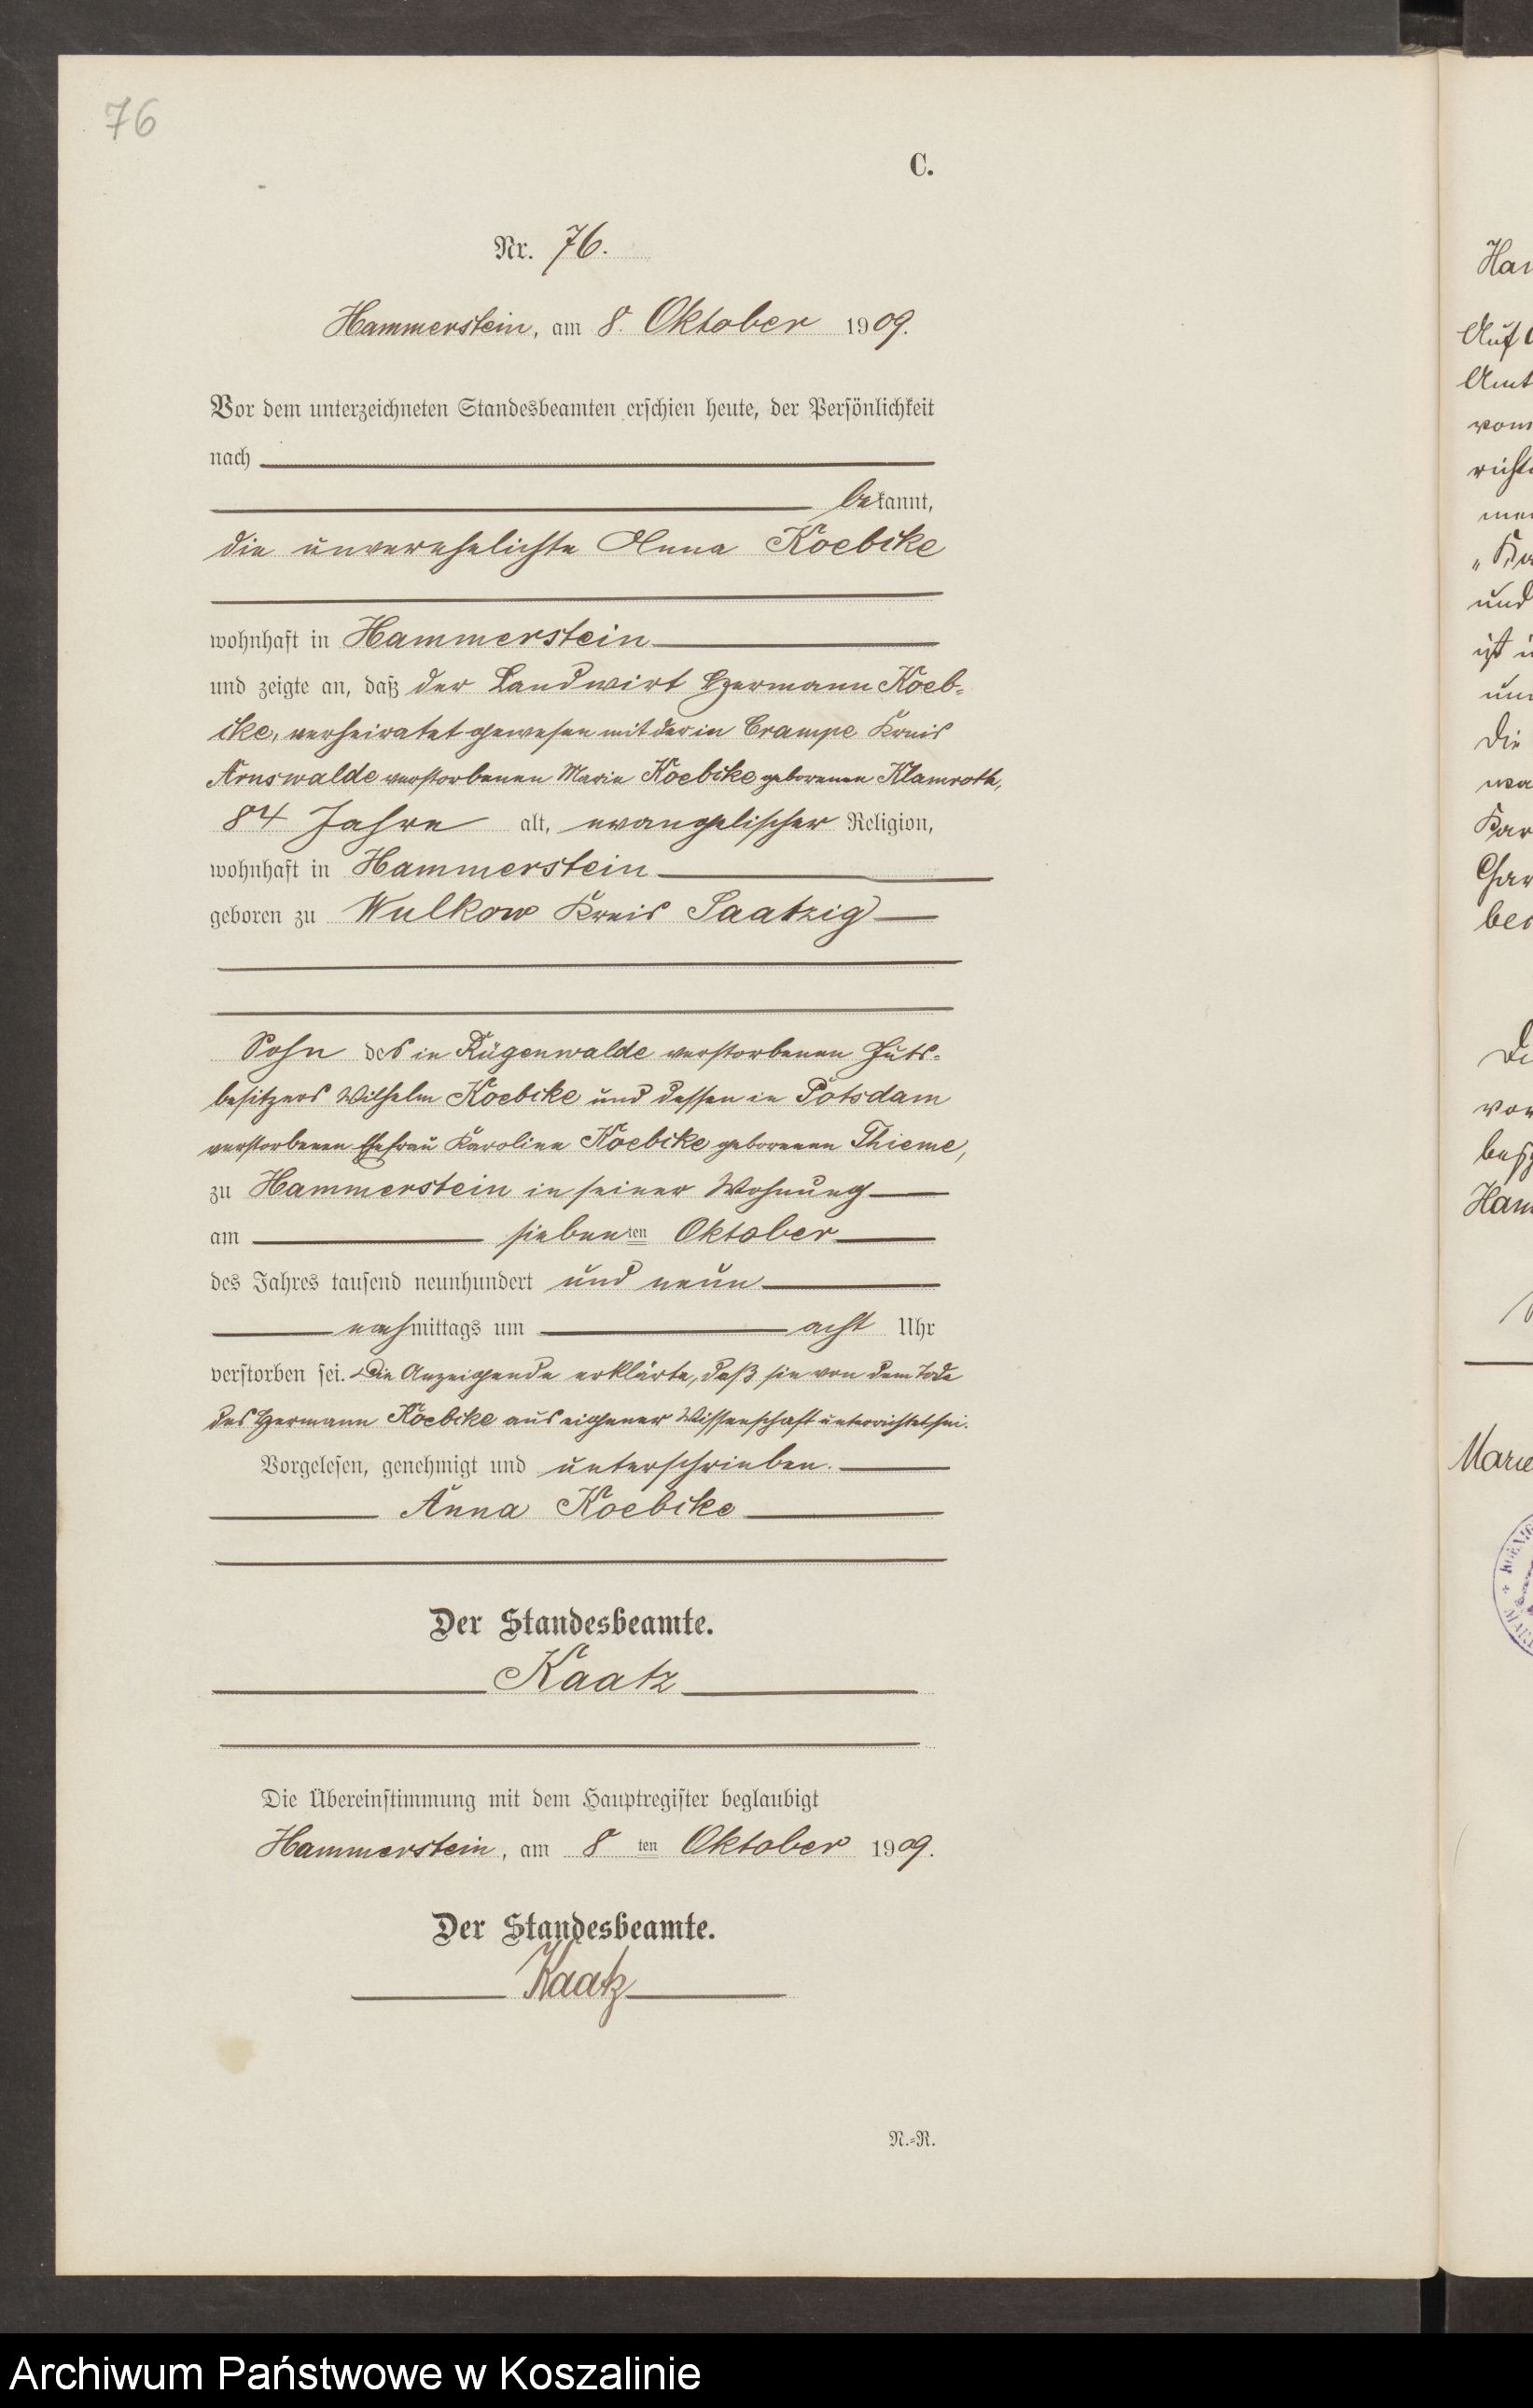 76
C.
Nr. 76.
Hammerstein, am 8. Oktober 1909.
Vor dem unterzeichneten Standesbeamten erschien heute, der Persönlichkeit
nach
bekannt,
die unverehelichte Anna Koebike
wohnhaft in Hammerstein
und zeigte an, daß der Landwirt Hermann Koeb-
ike, verheiratet gewesen mit der in Crampe Kreis
Arnswalde verstorbenen Marie Koebike geborenen Klamroth,
84 Jahre alt, evangelischer Religion,
wohnhaft in Hammerstein
geboren zu Wulkow Kreis Saatzig
Sohn des in Rügenwalde verstorbenen Guts-
besitzers Wilhelm Koebike und dessen in Potsdam
verstorbenen Ehefrau Karoline Koebike geborenen Thieme,
zu Hammerstein in seiner Wohnung
am siebenten Oktober
des Jahres tausend neunhundert und neun
nachmittags um acht Uhr
verstorben sei. Die Anzeigende erklärte, daß sie von dem Tode
des Hermann Koebike aus eigener Wissenschaft unterrichtet sei.
Vorgelesen, genehmigt und unterschrieben.
Anna Koebike
Der Standesbeamte.
Kaatz
Die Übereinstimmung mit dem Hauptregister beglaubigt
Hammerstein, am 8 ten Oktober 1909.
Der Standesbeamte.
Kaatz
N.=R.
Auf
vom
und
Die
Marie
Archiwum Państwowe w Koszalinie